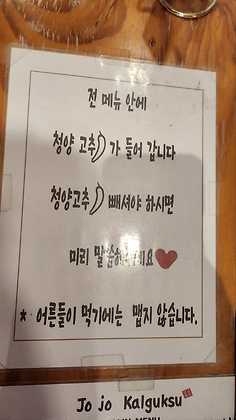 전 메뉴 안에
청양 고추 가 들어 갑니다
청양고추 빼셔야 하시면
미리
* 어른들이 먹기에는 맵지 않습니다.
Jo jo Kalguksu